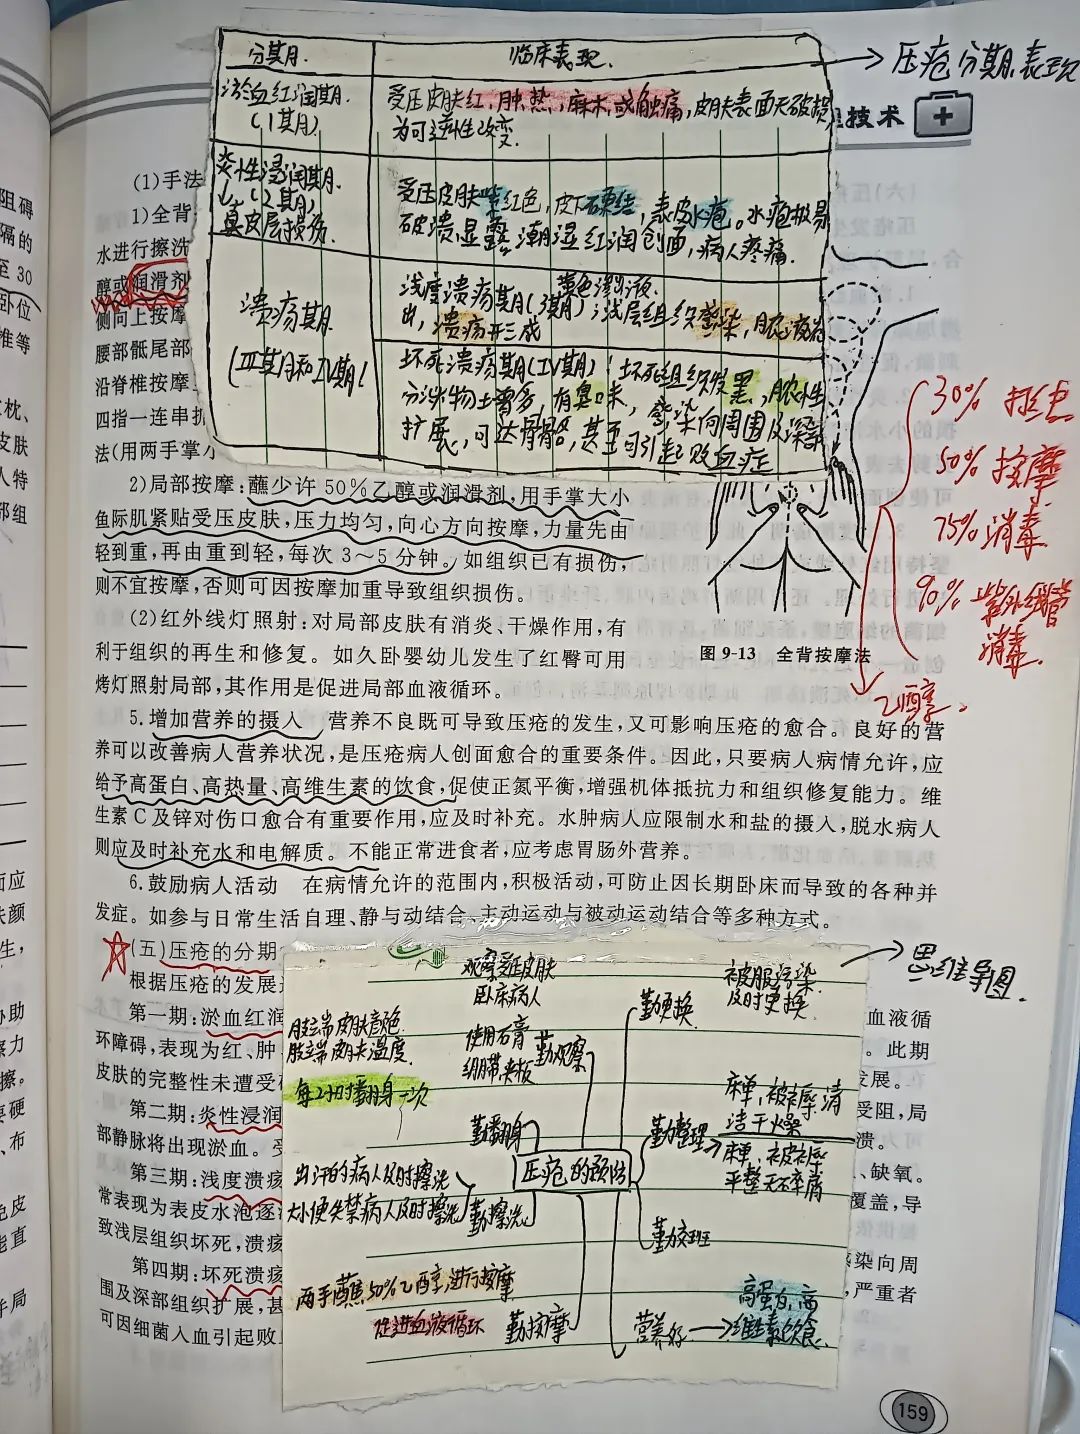 分期.
临床表现.
→压疮分期表现
淤血红润期.
(1期)
受压皮肤红,肿,热,麻木,或触痛,皮肤表面无破损,
为可逆性改变.
技术
炎性浸润期.
(2期)
真皮层损伤.
受压皮肤紫红色,皮下硬结,表皮水疱。水疱极易
破溃,显露潮湿红润创面,病人疼痛.
溃疡期.
(Ⅲ期和Ⅳ期)
黄色渗出液.
浅度溃疡期(3期):浅层组织感染,脓液流
出,溃疡形成
坏死溃疡期(Ⅳ期):坏死组织发黑,脓性
分泌物增多,有臭味,感染向周围及深部
扩展,可达骨骼,甚至可引起败血症
(1)手法
1)全背
水进行擦洗
醇或润滑剂
侧向上按摩
腰部骶尾部
沿脊椎按摩
四指一连串
法(用两手掌小
2)局部按摩:蘸少许50%乙醇或润滑剂,用手掌大小
鱼际肌紧贴受压皮肤,压力均匀,向心方向按摩,力量先由
轻到重,再由重到轻,每次3~5分钟。如组织已有损伤,
则不宜按摩,否则可因按摩加重导致组织损伤。
(2)红外线灯照射:对局部皮肤有消炎、干燥作用,有
利于组织的再生和修复。如久卧婴幼儿发生了红臀可用
烤灯照射局部,其作用是促进局部血液循环。
图9-13 全背按摩法
30%
50% 按摩
75% 消毒
90% 紫外线管
消毒.
乙醇.
5.增加营养的摄入 营养不良既可导致压疮的发生,又可影响压疮的愈合。良好的营
养可以改善病人营养状况,是压疮病人创面愈合的重要条件。因此,只要病人病情允许,应
给予高蛋白、高热量、高维生素的饮食,促使正氮平衡,增强机体抵抗力和组织修复能力。维
生素C及锌对伤口愈合有重要作用,应及时补充。水肿病人应限制水和盐的摄入,脱水病人
则应及时补充水和电解质。不能正常进食者,应考虑胃肠外营养。
6.鼓励病人活动 在病情允许的范围内,积极活动,可防止因长期卧床而导致的各种并
发症。如参与日常生活自理、静与动结合、主动运动与被动运动结合等多种方式。
(五)压疮的分期
根据压疮的发展
第一期:淤血红润
血液循
环障碍,表现为红、肿
。此期
皮肤的完整性未遭受
发展。
第二期:炎性浸润
受阻,局
部静脉将出现淤血。受
溃。
第三期:浅度溃疡
、缺氧。
常表现为表皮水泡逐
覆盖,导
致浅层组织坏死,溃疡
第四期:坏死溃疡
感染向周
围及深部组织扩展,甚
,严重者
可因细菌入血引起败
→思维导图.
压疮的预防
观察受压皮肤
卧床病人
使用石膏
绷带夹板
肢端皮肤颜色
肢端皮肤温度.
勤观察
每2小时翻身一次
勤翻身
出汗的病人及时擦洗
大小便失禁病人及时擦洗
勤擦洗
两手蘸50%乙醇,进行按摩
促进血液循环
勤按摩
勤更换
被服污染
及时更换
勤整理
床单,被褥,清
洁干燥
床单,被褥
平整无碎屑
勤交班
营养好→
高蛋白,高
维生素饮食.
159
阻碍
隔的
至30
卧位
椎等
枕、
皮肤
人特
部组
面应
肤颜
生,
协助
擦力
擦。
要硬
、布
色皮
能直
并局